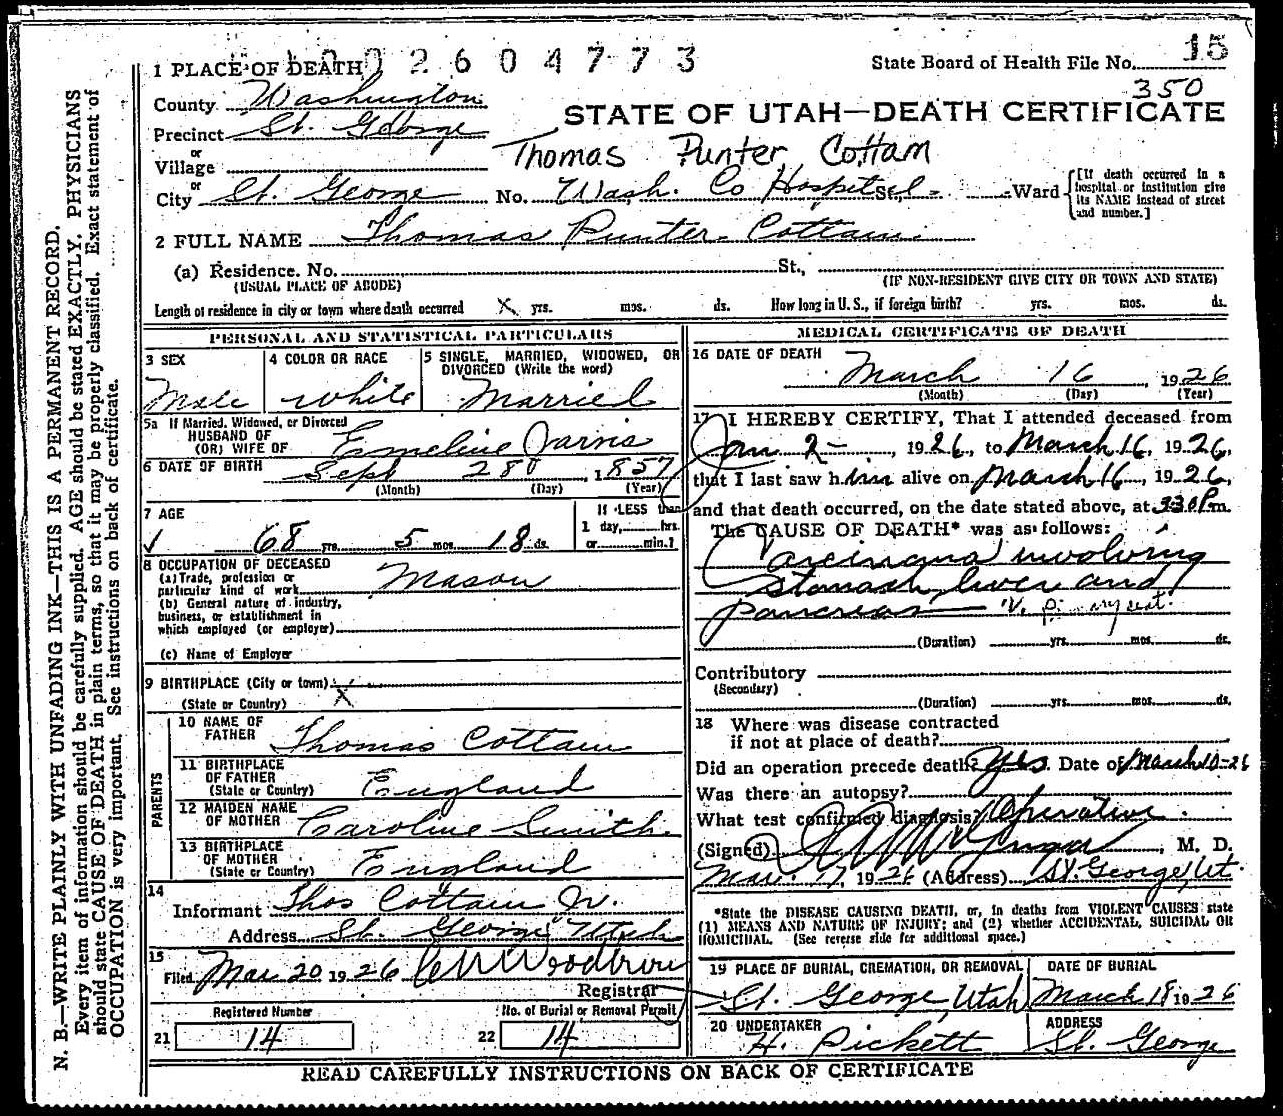 1 0 0 2 6 0 4 7 7 3
15
1 PLACE OF DEATH
State Board of Health File No.
350
County Washington
STATE OF UTAH—DEATH CERTIFICATE
Precinct St. George
or
Village
Thomas Punter Cottam
or
City St. George No. Wash. Co Hospital St., Ward
[If death occurred in a hospital or institution give its NAME instead of street and number.]
2 FULL NAME Thomas Punter Cottam
(a) Residence. No. St.,
(USUAL PLACE OF ABODE) (IF NON-RESIDENT GIVE CITY OR TOWN AND STATE)
Length of residence in city or town where death occurred X yrs. mos. ds. How long in U. S., if foreign birth? yrs. mos. ds.
PERSONAL AND STATISTICAL PARTICULARS
3 SEX
Male
4 COLOR OR RACE
White
5 SINGLE, MARRIED, WIDOWED, OR DIVORCED (Write the word)
Married
5a If Married, Widowed, or Divorced
HUSBAND OF
(OR) WIFE OF Emeline Jarvis
6 DATE OF BIRTH Sept 28 1857
(Month) (Day) (Year)
7 AGE
68 yrs. 5 mos. 18 ds.
If LESS than
1 day, hrs.
or min.?
8 OCCUPATION OF DECEASED
(a) Trade, profession or
particular kind of work Mason
(b) General nature of industry,
business, or establishment in
which employed (or employer)
(c) Name of Employer
9 BIRTHPLACE (City or town)
(State or Country) X
PARENTS
10 NAME OF
FATHER Thomas Cottam
11 BIRTHPLACE
OF FATHER
(State or Country) England
12 MAIDEN NAME
OF MOTHER Caroline Smith
13 BIRTHPLACE
OF MOTHER
(State or Country) England
14
Informant Thos Cottam Jr.
Address St. George Utah
15
Filed Mar 20 1926
Registrar
Registered Number
21 14
No. of Burial or Removal Permit
22 14
MEDICAL CERTIFICATE OF DEATH
16 DATE OF DEATH
March 16, 1926
(Month) (Day) (Year)
17 I HEREBY CERTIFY, That I attended deceased from
Jan 2-, 1926, to March 16, 1926,
that I last saw him alive on March 16, 1926,
and that death occurred, on the date stated above, at 330 P.m.
The CAUSE OF DEATH* was as follows:
Carcinoma involving
stomach, liver and
pancreas
(Duration) yrs. mos. ds.
Contributory
(Secondary)
(Duration) yrs. mos. ds.
18 Where was disease contracted
if not at place of death?
Did an operation precede death? Yes. Date of March 10-26
Was there an autopsy?
What test confirmed diagnosis? Operative
(Signed) , M. D.
Mar. 17, 1926 (Address) St. George, Ut.
*State the DISEASE CAUSING DEATH, or, in deaths from VIOLENT CAUSES state
(1) MEANS AND NATURE OF INJURY; and (2) whether ACCIDENTAL, SUICIDAL OR
HOMICIDAL. (See reverse side for additional space.)
19 PLACE OF BURIAL, CREMATION, OR REMOVAL
St. George, Utah
DATE OF BURIAL
March 18 1926
20 UNDERTAKER
H. Pickett
ADDRESS
St. George
READ CAREFULLY INSTRUCTIONS ON BACK OF CERTIFICATE
N. B.—WRITE PLAINLY WITH UNFADING INK—THIS IS A PERMANENT RECORD.
Every item of information should be carefully supplied. AGE should be stated EXACTLY. PHYSICIANS
should state CAUSE OF DEATH in plain terms, so that it may be properly classified. Exact statement of
OCCUPATION is very important. See instructions on back of certificate.